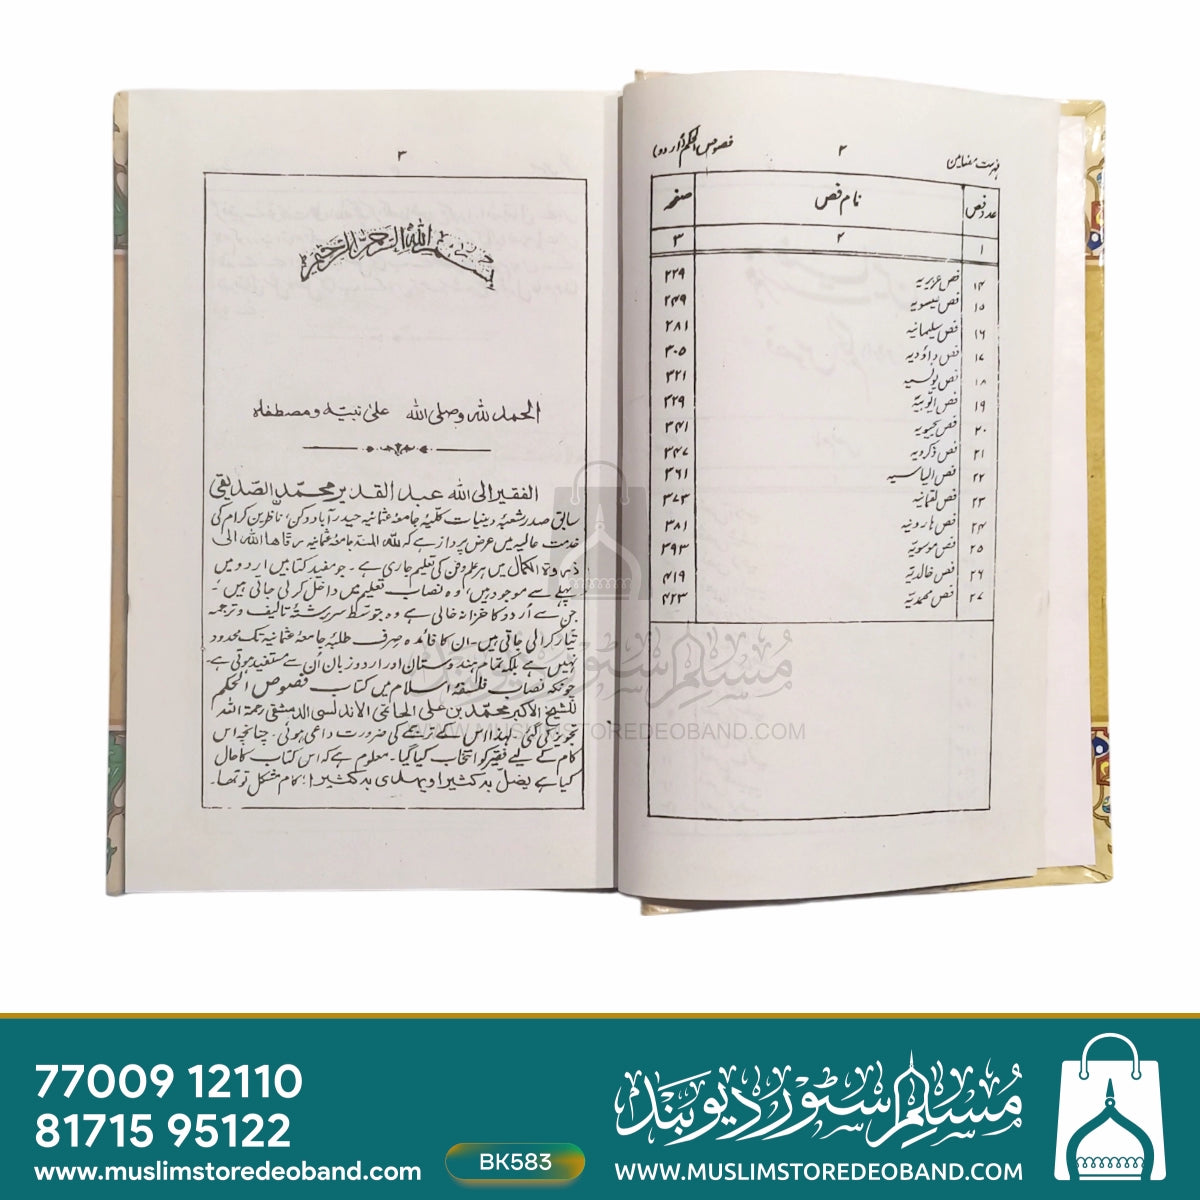 فہرست مضامین
۲
فصوص الحکم (اردو)
عدد فص نام فص صفحہ
۱ ۲ ۳
۱۴ فص عزیریہ ۲۲۹
۱۵ فص عیسویہ ۲۴۹
۱۶ فص سلیمانیہ ۲۸۱
۱۷ فص داؤدیہ ۳۰۵
۱۸ فص یونسیہ ۳۲۱
۱۹ فص ایوبیہ ۳۲۹
۲۰ فص یحیویہ ۳۴۱
۲۱ فص ذکرویہ ۳۴۷
۲۲ فص الیاسیہ ۳۶۱
۲۳ فص لقمانیہ ۳۷۳
۲۴ فص ہارونیہ ۳۸۱
۲۵ فص موسویہ ۳۹۳
۲۶ فص خالدیہ ۴۱۹
۲۷ فص محمدیہ ۴۲۳
۳
بسم اللہ الرحمن الرحیم
الحمد للہ وصلی اللہ علیٰ نبیہ ومصطفاہ
الفقیر الی اللہ عبد القدیر محمد الصدیقی
سابق صدر شعبۂ دینیات کلیۂ جامعۂ عثمانیہ حیدرآباد دکن، ناظرین کرام کی
خدمت عالیہ میں عرض پرداز ہے کہ للہ المنۃ جامعۂ عثمانیہ رقاھا اللہ الی
ذروۃ الکمال میں ہر علم و فن کی تعلیم جاری ہے۔ جو مفید کتابیں اردو میں
پہلے سے موجود ہیں، وہ نصاب تعلیم میں داخل کرلی جاتی ہیں؛
جن سے اردو کا خزانہ خالی ہے وہ بتوسط سررشتۂ تالیف و ترجمہ
تیار کرالی جاتی ہیں۔ ان کا فائدہ صرف طلبۂ جامعۂ عثمانیہ تک محدود
نہیں ہے بلکہ تمام ہندوستان اور اردو زبان اُن سے مستفید ہوتی ہے
چونکہ نصاب فلسفۂ اسلام میں کتاب فصوص الحکم
للشیخ الاکبر محمد بن علی الحاتمی الاندلسی الدمشقی رحمۃ اللہ
تجویز کی گئی لہذا اس کے ترجمے کی ضرورت داعی ہوئی۔ چنانچہ اس
کام کے لیے فقیر کو انتخاب کیا گیا۔ معلوم ہے کہ اس کتاب کا حال
کیا ہے یضل بہ کثیرا ویہدی بہ کثیرا؛ کام مشکل تو تھا۔
مسلم سٹور دیوبند
WWW.MUSLIMSTOREDEOBAND.COM
77009 12110
81715 95122
www.muslimstoredeoband.com
BK583
مسلم سٹور دیوبند
WWW.MUSLIMSTOREDEOBAND.COM